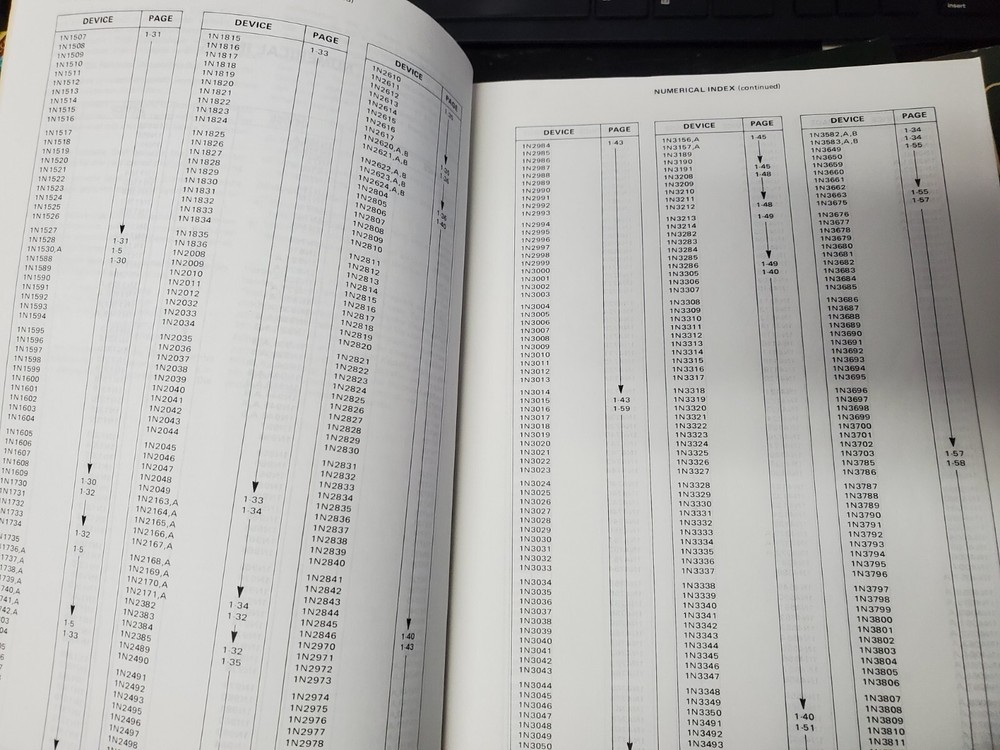 DEVICE PAGE
1N1507 1-31
1N1508
1N1509
1N1510
1N1511
1N1512
1N1513
1N1514
1N1515
1N1516
1N1517
1N1518
1N1519
1N1520
1N1521
1N1522
1N1523
1N1524
1N1525
1N1526
1N1527
1N1528 1-31
1N1530,A 1-5
1N1588 1-30
1N1589
1N1590
1N1591
1N1592
1N1593
1N1594
1N1595
1N1596
1N1597
1N1598
1N1599
1N1600
1N1601
1N1602
1N1603
1N1604
1N1605
1N1606
1N1607
1N1608
1N1609 1-30
1N1730 1-32
1N1731
1N1732
1N1733
1N1734 1-32
1N1735 1-5
1736,A
1737,A
1738,A
739,A
740,A
741,A
742,A 1-5
03 1-33
04
DEVICE PAGE
1N1815 1-33
1N1816
1N1817
1N1818
1N1819
1N1820
1N1821
1N1822
1N1823
1N1824
1N1825
1N1826
1N1827
1N1828
1N1829
1N1830
1N1831
1N1832
1N1833
1N1834
1N1835
1N1836
1N2008
1N2009
1N2010
1N2011
1N2012
1N2032
1N2033
1N2034
1N2035
1N2036
1N2037
1N2038
1N2039
1N2040
1N2041
1N2042
1N2043
1N2044
1N2045
1N2046
1N2047
1N2048
1N2049 1-33
1N2163,A 1-34
1N2164,A
1N2165,A
1N2166,A
1N2167,A
1N2168,A
1N2169,A
1N2170,A
1N2171,A 1-34
1N2382 1-32
1N2383
1N2384
1N2385 1-32
1N2489 1-35
1N2490
1N2491
1N2492
1N2493
1N2495
1N2496
1N2497
1N2498
DEVICE PAGE
1N2610 1-35
1N2611
1N2612
1N2613
1N2614
1N2615
1N2616
1N2617 1-35
1N2620,A,B 1-36
1N2621,A,B
1N2622,A,B
1N2623,A,B
1N2624,A,B 1-36
1N2804 1-40
1N2805
1N2806
1N2807
1N2808
1N2809
1N2810
1N2811
1N2812
1N2813
1N2814
1N2815
1N2816
1N2817
1N2818
1N2819
1N2820
1N2821
1N2822
1N2823
1N2824
1N2825
1N2826
1N2827
1N2828
1N2829
1N2830
1N2831
1N2832
1N2833
1N2834
1N2835
1N2836
1N2837
1N2838
1N2839
1N2840
1N2841
1N2842
1N2843
1N2844
1N2845
1N2846 1-40
1N2970 1-43
1N2971
1N2972
1N2973
1N2974
1N2975
1N2976
1N2977
1N2978
insert
NUMERICAL INDEX (continued)
DEVICE PAGE
1N2984 1-43
1N2985
1N2986
1N2987
1N2988
1N2989
1N2990
1N2991
1N2992
1N2993
1N2994
1N2995
1N2996
1N2997
1N2998
1N2999
1N3000
1N3001
1N3002
1N3003
1N3004
1N3005
1N3006
1N3007
1N3008
1N3009
1N3010
1N3011
1N3012
1N3013
1N3014
1N3015 1-43
1N3016 1-59
1N3017
1N3018
1N3019
1N3020
1N3021
1N3022
1N3023
1N3024
1N3025
1N3026
1N3027
1N3028
1N3029
1N3030
1N3031
1N3032
1N3033
1N3034
1N3035
1N3036
1N3037
1N3038
1N3039
1N3040
1N3041
1N3042
1N3043
1N3044
1N3045
1N3046
1N3047
1N3048
1N3049
1N3050
DEVICE PAGE
1N3156,A 1-45
1N3157,A
1N3189
1N3190
1N3191 1-45
1N3208 1-48
1N3209
1N3210
1N3211
1N3212 1-48
1N3213 1-49
1N3214
1N3282
1N3283
1N3284
1N3285
1N3286 1-49
1N3305 1-40
1N3306
1N3307
1N3308
1N3309
1N3310
1N3311
1N3312
1N3313
1N3314
1N3315
1N3316
1N3317
1N3318
1N3319
1N3320
1N3321
1N3322
1N3323
1N3324
1N3325
1N3326
1N3327
1N3328
1N3329
1N3330
1N3331
1N3332
1N3333
1N3334
1N3335
1N3336
1N3337
1N3338
1N3339
1N3340
1N3341
1N3342
1N3343
1N3344
1N3345
1N3346
1N3347
1N3348
1N3349
1N3350 1-40
1N3491 1-51
1N3492
1N3493
DEVICE PAGE
1N3582,A,B 1-34
1N3583,A,B 1-34
1N3649 1-55
1N3650
1N3659
1N3660
1N3661
1N3662
1N3663 1-55
1N3675 1-57
1N3676
1N3677
1N3678
1N3679
1N3680
1N3681
1N3682
1N3683
1N3684
1N3685
1N3686
1N3687
1N3688
1N3689
1N3690
1N3691
1N3692
1N3693
1N3694
1N3695
1N3696
1N3697
1N3698
1N3699
1N3700
1N3701
1N3702
1N3703 1-57
1N3785 1-58
1N3786
1N3787
1N3788
1N3789
1N3790
1N3791
1N3792
1N3793
1N3794
1N3795
1N3796
1N3797
1N3798
1N3799
1N3800
1N3801
1N3802
1N3803
1N3804
1N3805
1N3806
1N3807
1N3808
1N3809
1N3810
1N3811